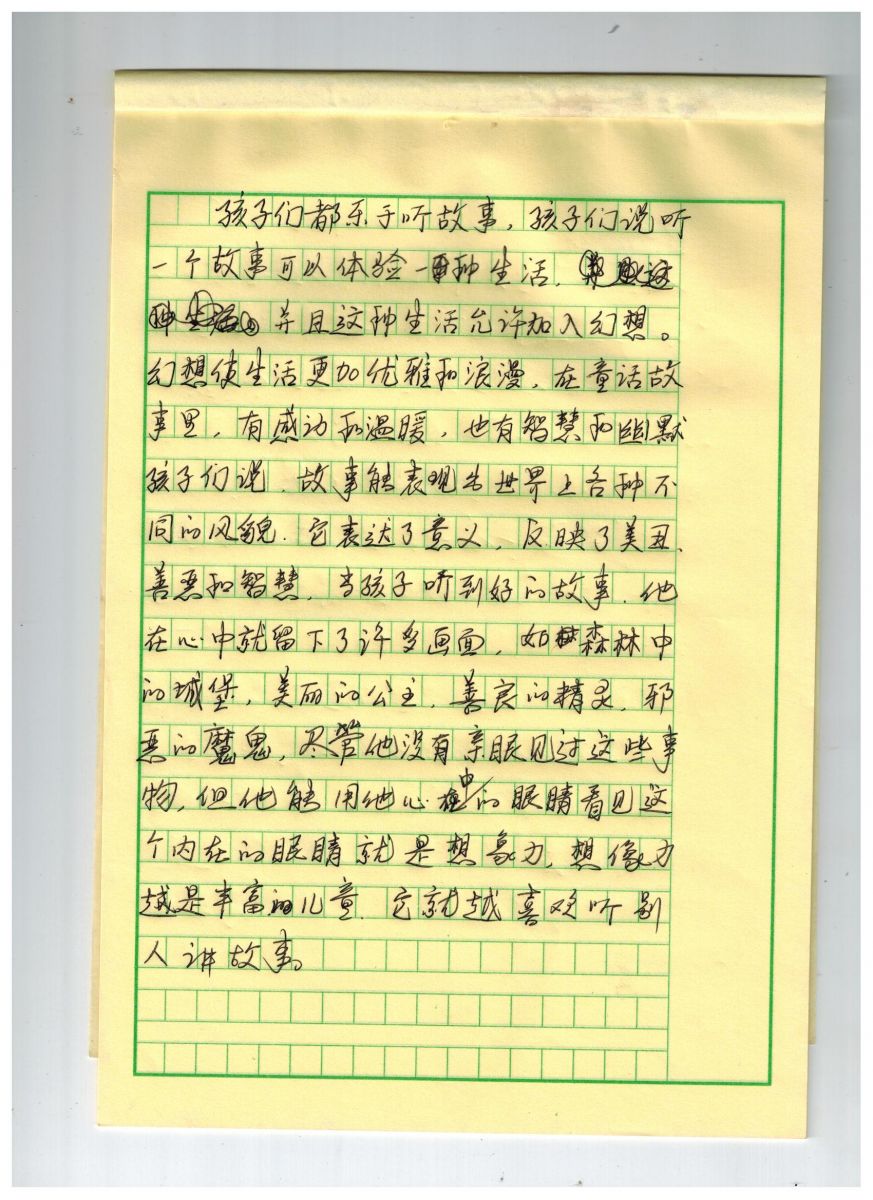 孩子们都乐于听故事，孩子们说听
一个故事可以体验一种生活，
并且这种生活允许加入幻想。
幻想使生活更加优雅和浪漫，在童话故
事里，有感动和温暖，也有智慧和幽默
孩子们说，故事能表现出世界上各种不
同的风貌，它表达了意义，反映了美丑、
善恶和智慧，当孩子听到好的故事，他
在心中就留下了许多画面，如森林中
的城堡，美丽的公主，善良的精灵，邪
恶的魔鬼，尽管他没有亲眼见过这些事
物，但他能用他心中的眼睛看见这
个内在的眼睛就是想象力，想像力
越是丰富的儿童，它就越喜欢听别
人讲故事。